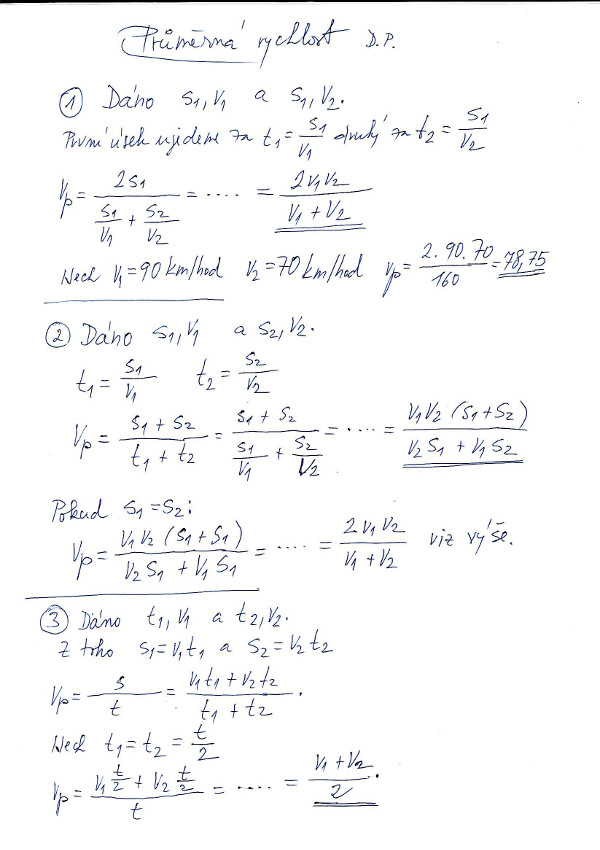 Průměrná rychlost D.P.
① Dáno s₁, v₁ a s₁, v₂.
První úsek ujedeme za t₁ = s₁/v₁ druhý za t₂ = s₁/v₂
vₚ = 2s₁/(s₁/v₁ + s₂/v₂) = .... = 2v₁v₂/(v₁ + v₂)
Nech v₁ = 90 km/hod v₂ = 70 km/hod vₚ = 2.90.70/160 = 78,75
② Dáno s₁, v₁ a s₂, v₂.
t₁ = s₁/v₁ t₂ = s₂/v₂
vₚ = (s₁ + s₂)/(t₁ + t₂) = (s₁ + s₂)/(s₁/v₁ + s₂/v₂) = .... = v₁v₂(s₁ + s₂)/(v₂s₁ + v₁s₂)
Pokud s₁ = s₂:
vₚ = v₁v₂(s₁ + s₁)/(v₂s₁ + v₁s₁) = .... = 2v₁v₂/(v₁ + v₂) viz výše.
③ Dáno t₁, v₁ a t₂, v₂.
Z toho s₁ = v₁t₁ a s₂ = v₂t₂
vₚ = s/t = (v₁t₁ + v₂t₂)/(t₁ + t₂).
Nech t₁ = t₂ = t/2
vₚ = (v₁ t/2 + v₂ t/2)/t = .... = (v₁ + v₂)/2.